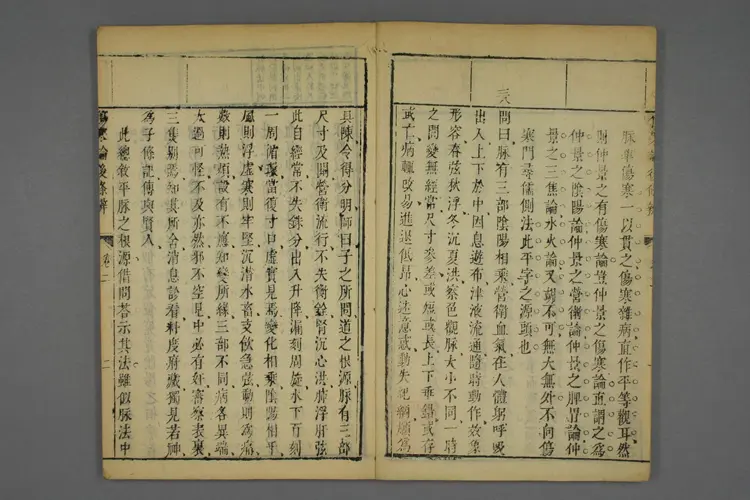 脉準傷寒一以貫之傷寒雜病直作平等觀耳然
則仲景之有傷寒論豈仲景之傷寒論直謂之爲
仲景之陰陽論仲景之營衛論仲景之脾胃論仲
景之三焦論水火論又胡不可無大無外不向傷
寒門尋儒側法此平字之源頭也
三八
問曰脉有三部陰陽相乘營衛血氣在人體躬呼吸
出入上下於中因息遊布津液流通隨時動作效象
形容春弦秋浮冬沉夏洪察色觀脉大小不同一時
之間變無經常尺寸參差或短或長上下乖錯或存
或亡病輒改易進退低昂心迷意惑動失紀綱願爲
具陳令得分明師曰子之所問道之根源脉有三部
尺寸及關營衛流行不失衡銓腎沉心洪肺浮肝弦
此自經常不失銖分出入升降漏刻周旋水下百刻
一周循環當復寸口虛實見焉變化相乘陰陽相干
風則浮虛寒則牢堅沉潛水畜支飲急弦動則爲痛
數則熱煩設有不應知變所緣三部不同病各異端
太過可怪不及亦然邪不空見中必有奸審察表裏
三焦別焉知其所舍消息診看料度府臟獨見若神
爲子條記傳與賢人
此總敘平脉之根源借問荅示其法雖似脉法中
傷寒論後條辨
卷二
二